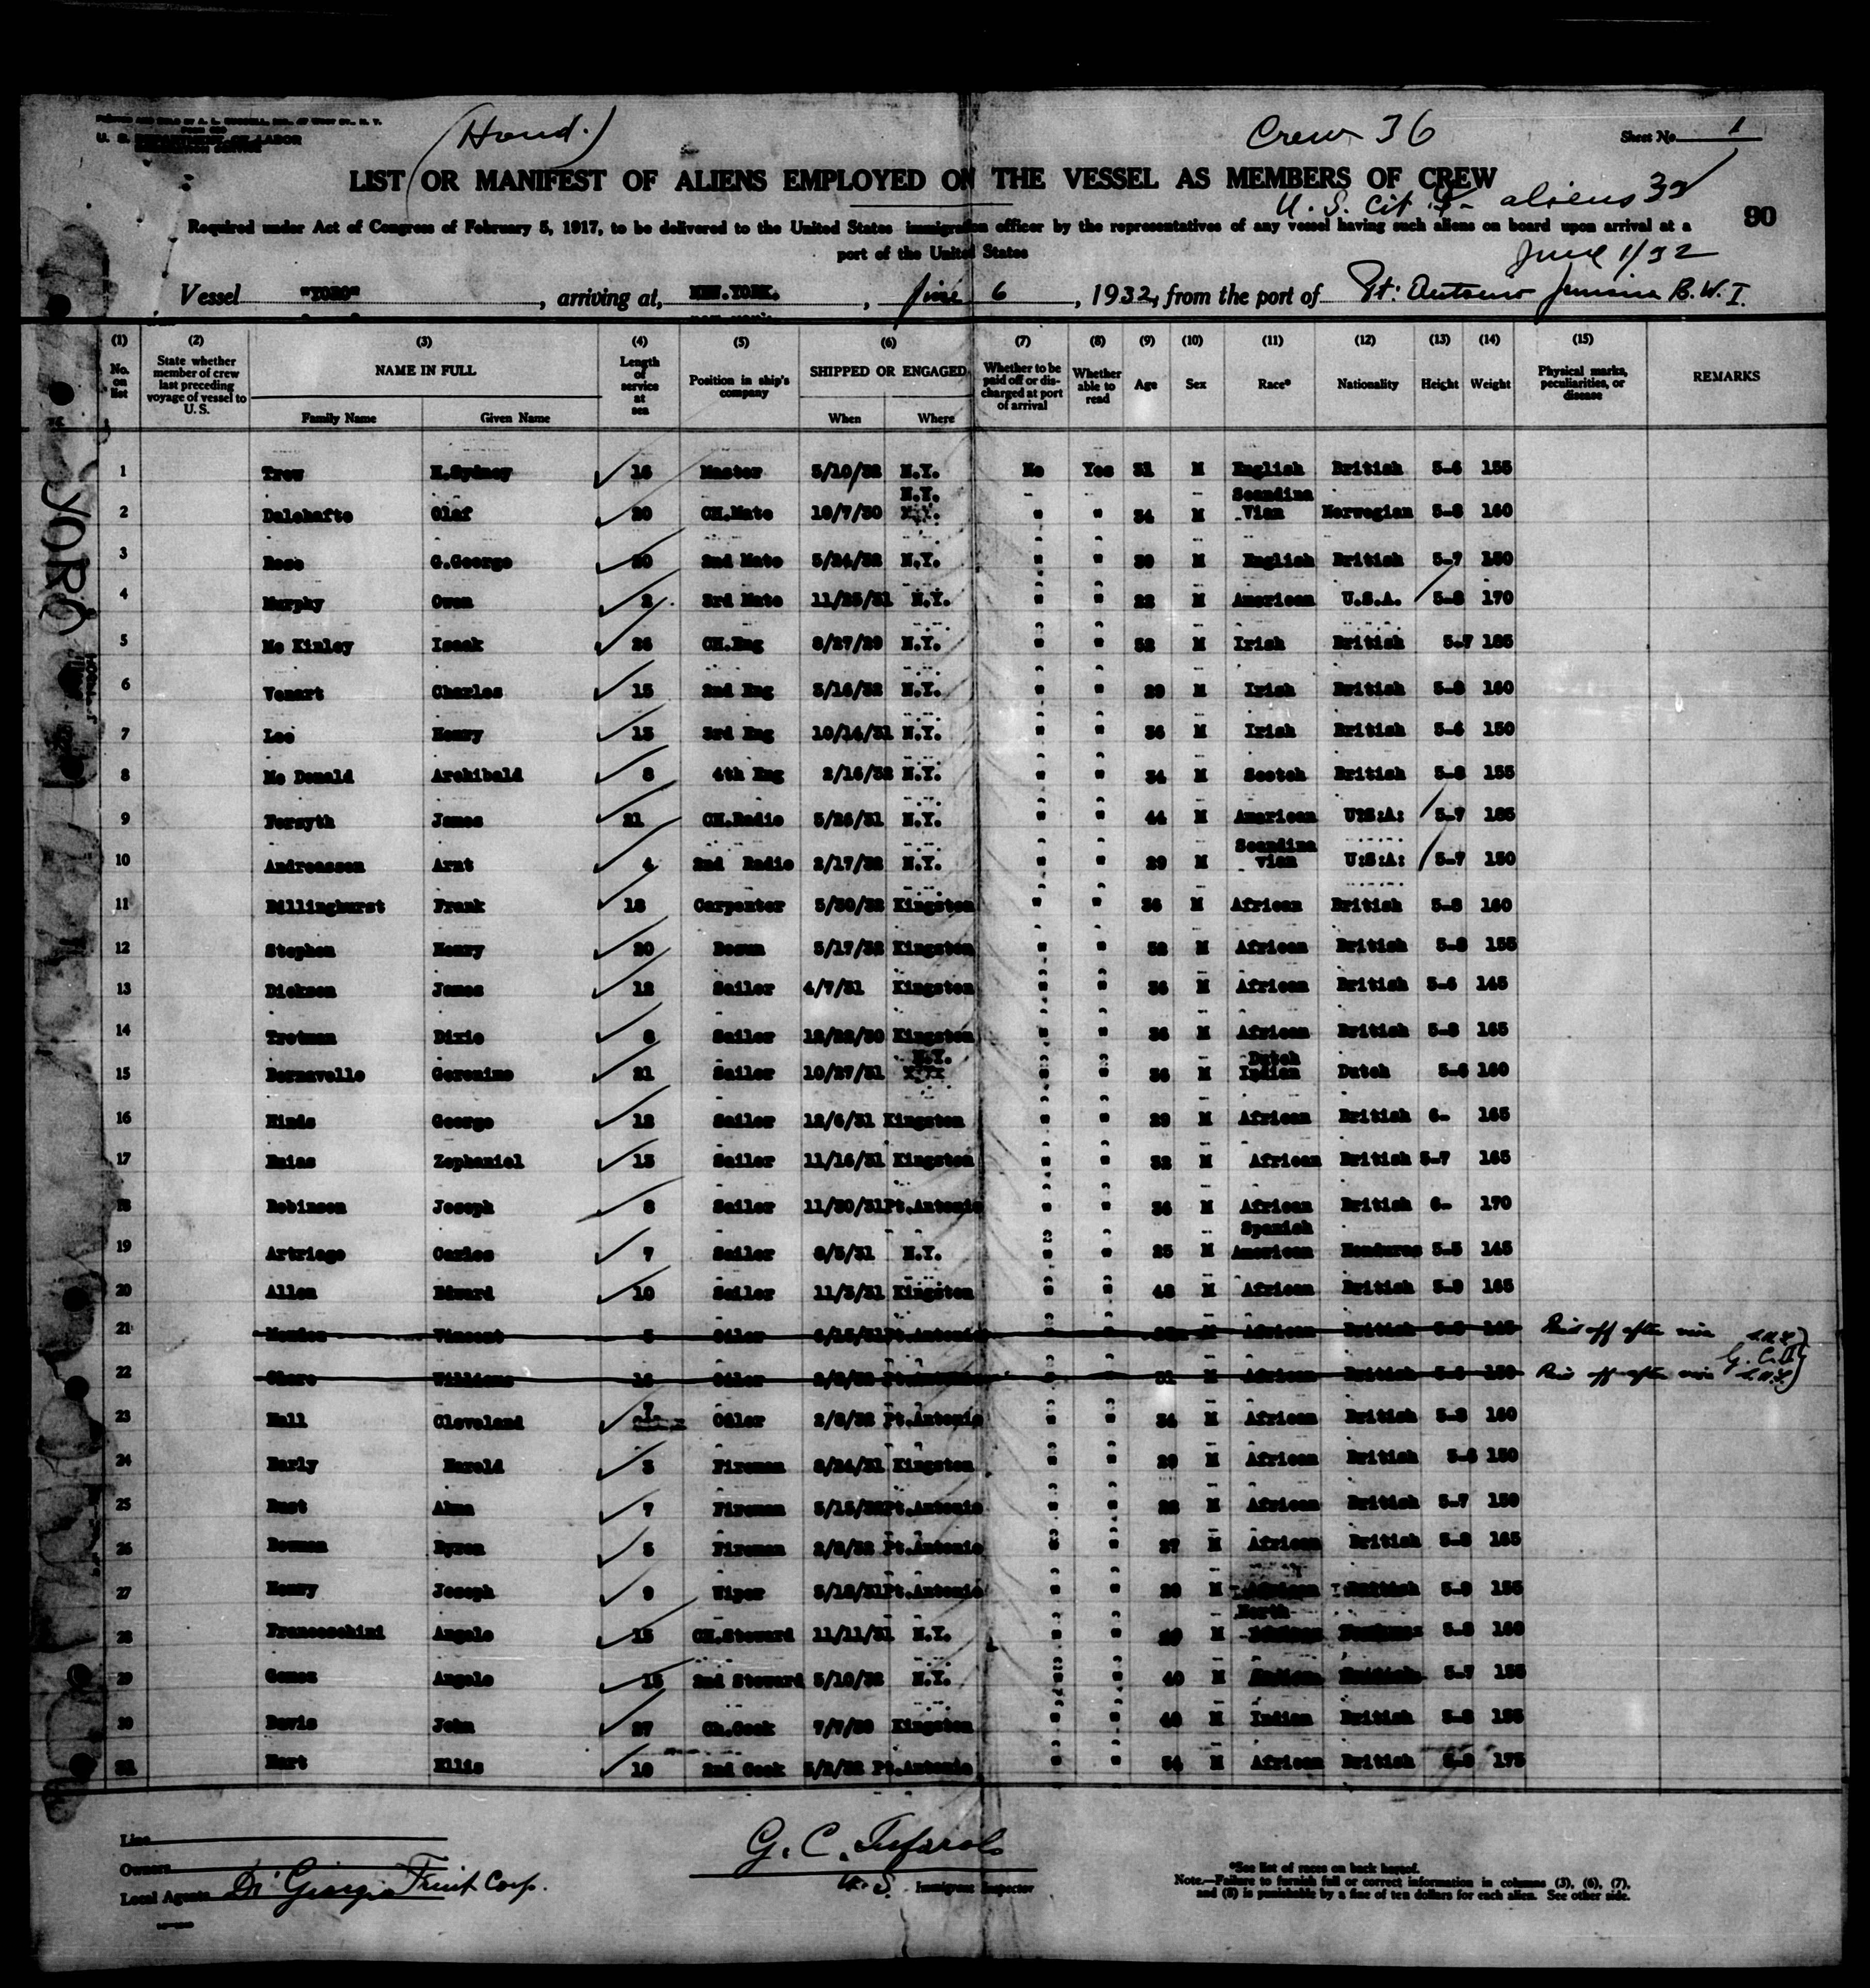 (Hond.)
Crew 36
Sheet No. 1
U. S. DEPARTMENT OF LABOR
IMMIGRATION SERVICE
LIST OR MANIFEST OF ALIENS EMPLOYED ON THE VESSEL AS MEMBERS OF CREW
U. S. cit 4 - aliens 32
90
Required under Act of Congress of February 5, 1917, to be delivered to the United States immigration officer by the representatives of any vessel having such aliens on board upon arrival at a
port of the United States
June 1/32
Vessel "YORO", arriving at, NEW.YORK., June 6, 1932, from the port of Pt. Antonio Jamaica B. W. I.
(1) (2) (3) (4) (5) (6) (7) (8) (9) (10) (11) (12) (13) (14) (15)
No. on list
State whether member of crew last preceding voyage of vessel to U. S.
NAME IN FULL
Family Name Given Name
Length of service at sea
Position in ship's company
SHIPPED OR ENGAGED
When Where
Whether to be paid off or discharged at port of arrival
Whether able to read
Age Sex Race* Nationality Height Weight
Physical marks, peculiarities, or disease
REMARKS
YORO
1 Trew H.Sydney 16 Master 5/10/32 N.Y. No Yes 31 M English British 5-6 155
2 Dalehafte Olaf 20 CH.Mate 10/7/30 N.Y. " " 34 M Scandina Vian Norwegian 5-8 160
3 Rose G.George 20 2nd Mate 5/24/32 N.Y. " " 39 M English British 5-7 150
4 Murphy Owen 2 3rd Mate 11/25/31 N.Y. " " 22 M American U.S.A. 5-8 170
5 Mc Kinley Isaak 26 CH.Eng 8/27/29 N.Y. " " 52 M Irish British 5-7 185
6 Venart Charles 15 2nd Eng 5/16/32 N.Y. " " 29 M Irish British 5-8 160
7 Lee Henry 15 3rd Eng 10/14/31 N.Y. " " 36 M Irish British 5-6 150
8 Mc Donald Archibald 8 4th Eng 2/16/32 N.Y. " " 34 M Scotch British 5-8 155
9 Forsyth James 21 CH.Radio 5/26/31 N.Y. " " 44 M American U:S:A: 5-7 185
10 Andreassen Arnt 4 2nd Radio 2/17/32 N.Y. " " 29 M Scandina vian U:S:A: 5-7 150
11 Billinghurst Frank 18 Carpenter 5/30/32 Kingston " " 36 M African British 5-8 160
12 Stephen Henry 20 Bosun 5/17/32 Kingston " " 52 M African British 5-8 155
13 Dickson James 12 Sailor 4/7/31 Kingston " " 36 M African British 5-6 145
14 Trotman Dixie 8 Sailor 12/22/30 Kingston " " 36 M African British 5-8 165
15 Bernavello Geronimo 21 Sailor 10/27/31 N.Y. " " 36 M Dutch Indian Dutch 5-6 160
16 Hinds George 12 Sailor 12/6/31 Kingston " " 29 M African British 6- 165
17 Zephaniel 15 Sailor 11/16/31 Kingston " " 32 M African British 5-7 165
18 Robinson Joseph 8 Sailor 11/30/31 Pt.Antonio " " 36 M African British 6- 170
19 Artriago Carlos 7 Sailor 8/5/31 N.Y. " " 25 M Spanish American Honduras 5-5 145
20 Allen Edward 10 Sailor 11/3/31 Kingston " " 48 M African British 5-9 165
21 Vincent 5 Oiler Pt.Antonio M African British Paid off after visa
22 Williams Oiler " " 31 M African British 150 Paid off after visa
23 Hall Cleveland 7 Oiler 2/8/32 Pt.Antonio " " 34 M African British 5-8 160
24 Early Harold 3 Fireman 8/24/31 Kingston " " 29 M African British 5-6 150
25 Rust Alma 7 Fireman 5/15/32 Pt.Antonio " " 28 M African British 5-7 150
26 Bowman Byron 5 Fireman 2/8/32 Pt.Antonio " " 27 M African British 5-8 165
27 Henry Joseph 9 Wiper 5/12/31 Pt.Antonio " " 29 M African British 5-9 155
28 Franceschini Angelo 15 CH.Steward 11/11/31 N.Y. " " M North 5-8 160
29 Gomez Angelo 15 2nd Steward 5/10/32 N.Y. " " 40 M 5-7 155
30 Davis John 27 Ch.Cook 7/7/30 Kingston " " 48 M Indian British 5-8 155
31 Hart Ellis 10 2nd Cook 5/2/32 Pt.Antonio " " 34 M African British 5-9 175
Line
Owners
Local Agents Di Giorgio Fruit Corp.
G. C. Tufarolo
U. S. Immigrant Inspector
*See list of races on back hereof.
Note.—Failure to furnish full or correct information in columns (3), (6), (7),
and (8) is punishable by a fine of ten dollars for each alien. See other side.